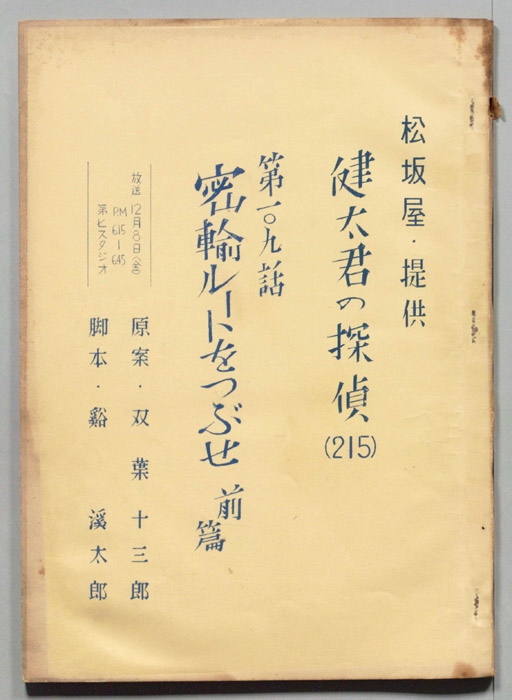 松坂屋・提供
健太君の探偵
(215)
第一〇九話
密輸ルートをつぶせ 前篇
放送 12月8日(金)
PM 615―645
第ヒスタジオ
原案・双葉十三郎
脚本・谿 渓太郎